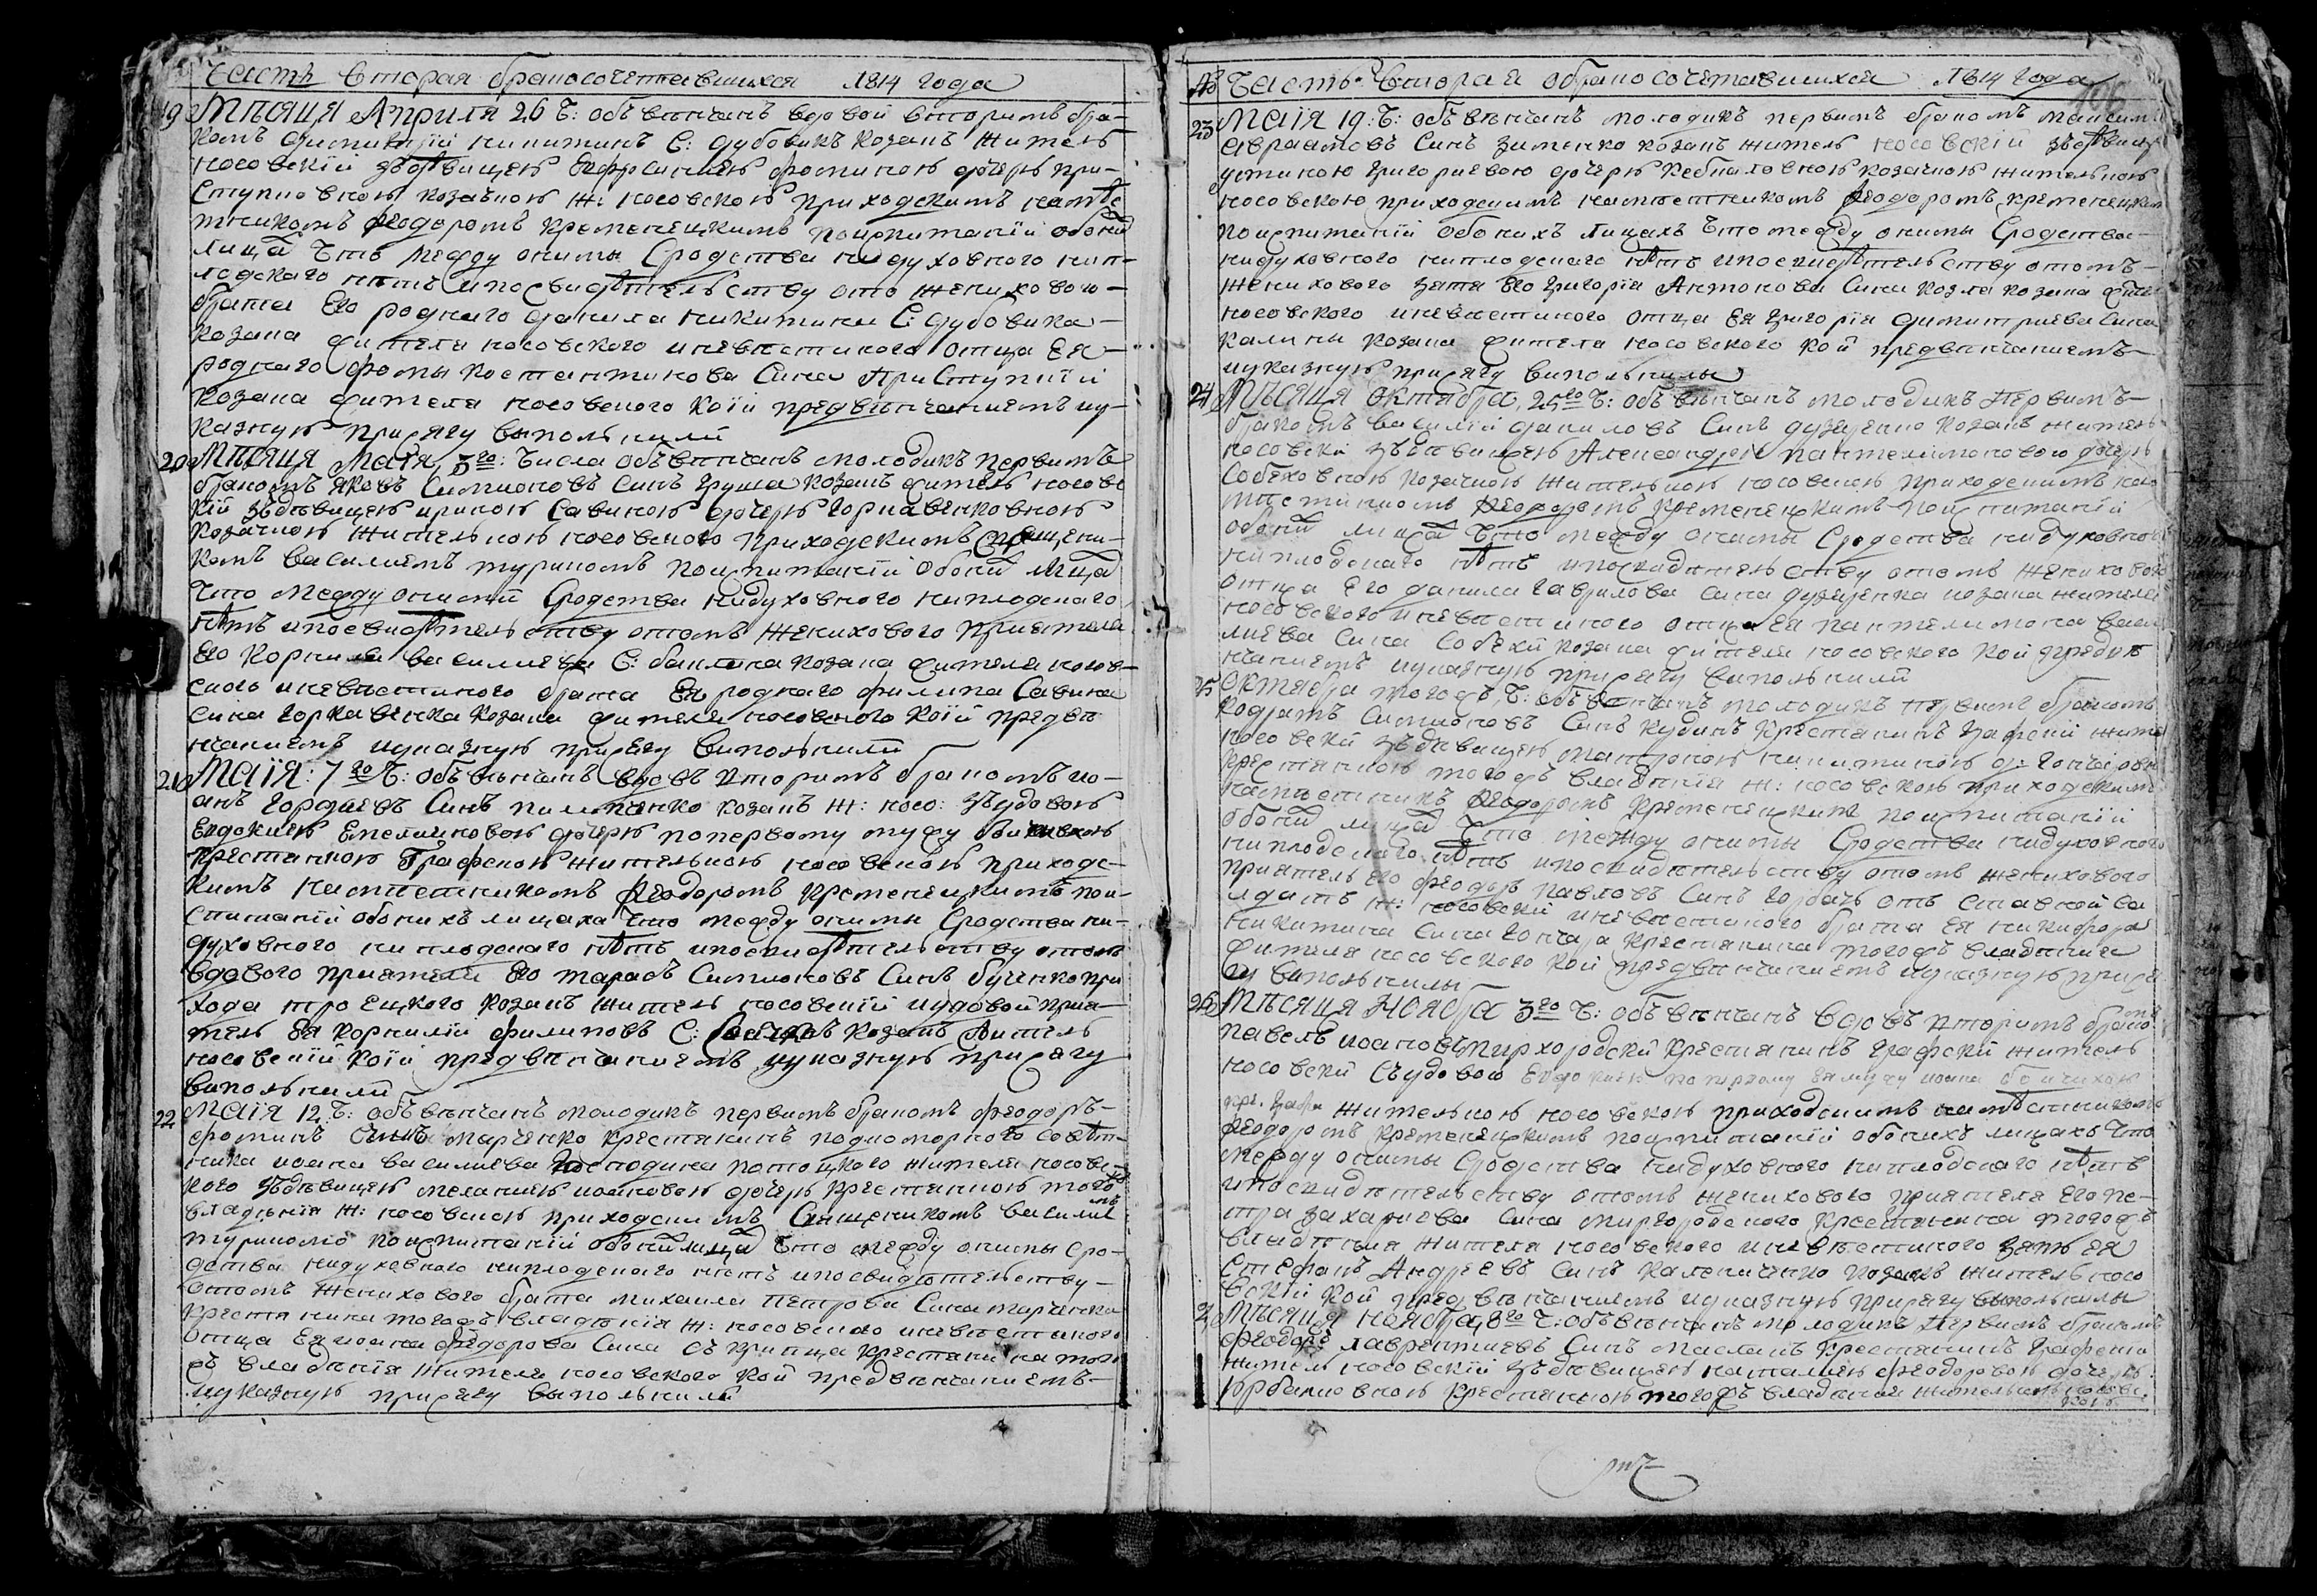 Часть вторая бракосочетавшихся 1814 года
19 Мѣсяця Априля 26 Ч: обвѣнчанъ вдовой вторимъ бра-
комъ Димитрій никитинъ С: дубовикъ козакъ житель
носовскій зъ дѣвицею Ефросиніею фоминою дочерю при-
ступковною козачкою ж: носовскою приходскимъ намѣс
тникомъ Феодоромъ Кременецкимъ поиспитаніи обоихъ
лицахъ что между оними Сродства нидуховного нип-
лодскаго нѣтъ ипосвидѣтелству ото женихового
брата Его родного данила никитина С: дубовика
козака жителя носовского иневѣстиного отца Ея
родного фомы костантинова Сина Приступкіи
козака жителя носовского коіи предвѣнчаниемъ иу-
казную присягу выполънили
20 Мѣсяця Маія 3го: Числа обвѣнчанъ молодикъ первимъ
бракомъ яковъ Симионовъ Синъ груша козакъ житель носовс
кій зъ дѣвицею ириною Савиною дочерю Горкавенковною
козачкою жителкою носовскою приходскимъ священи-
комъ Василиемъ туриномъ поиспитаніи обоихъ лицахъ
что между оними Сродства нидуховного ниплодскаго
нѣтъ ипосвидѣтелству отомъ женихового приятеля
Его Корнилия василиева С: козака жителя носов-
ского иневѣстиного брата Ея родного филипа Савина
сина горкавенка козака жителя носовского коіи предвѣ
нчаниемъ иуказную присягу виполънили
21 Маія: 7го Ч: обвѣнчанъ вдовъ вторимъ бракомъ ио-
анъ Гордиевъ Синъ пилипенко козакъ ж: носо: зъ удовою
Евдокиею Емелияновою дочерю попервому мужу
крестянкою Графскою жителкою носовскою приходс-
кимъ намѣстникомъ Феодоромъ Кременецкимъ пои-
спитаніи обоихъ лицахъ что между оними Сродства ни-
духовного ниплодскаго нѣтъ ипосвидѣтелству отомъ
вдового приятеля Его тарасъ Симионовъ Синъ бученко при
хода троецкого козакъ житель носовскій иудовой прия-
тель Ея корнилій филиповъ С: козакъ житель
носовскій коіи предвѣнчаниемъ иуказную присягу
виполънили
22 Маія 12 Ч: обвѣнчанъ молодикъ первимъ бракомъ феодоръ
фоминъ Синъ марченко крестянинъ надворного совѣт-
ника иоана василиева Господина потоцкого жителя носовс-
кого зъ дѣвицею меланиею иоановою дочерю крестянкою того
владѣнія ж: носовскою приходскимъ Священикомъ василие
туриномъ поиспитаніи обоихъ лицахъ что между оними сро-
дства нидуховного ниплодскаго нѣтъ ипосвидѣтелству
отомъ женихового брата михаила петрова Сина марченка
крестянина тогожъ владѣнія ж: носовского иневѣстиного
отца Ея иоана федорова Сина крестянина того
жъ владѣнія жителя носовского кой предвѣнчаниемъ
иуказную присягу выполънили
Часть вторая обракосочетавшихся 1814 года
106
23 Маія 19: Ч: обвѣнчанъ молодикъ первимъ бракомъ максимъ
авраамовъ Синъ зименко козакъ житель носовскій зъ дѣвицею
устиною григориевою дочерю козачкою жителкою
носовскою приходскимъ намѣстникомъ Феодоромъ кременецким
поиспитаніи обоихъ лицахъ что между оними Сродства
нидуховного ниплодскаго нѣтъ ипосвидѣтелству отомъ
женихового зятя Его григорія Антонова Сина козла козака жител
носовского иневѣстиного отца Ея григорія димитриева Сина
калины козака жителя носовского кой предвѣнчаниемъ
иуказную присягу виполънили
24 Мѣсяця октября, 25го Ч: обвѣнчанъ молодикъ первимъ
бракомъ василій даниловъ Синъ козакъ житель
носовскій зъ дѣвицею Александрою пантелимоновою дочерю
Собеховною козачкою жителкою носовскою приходскимъ нам
ѣстникомъ Феодоромъ Кременецкимъ поиспитаніи
обоихъ лицахъ что между оними Сродства нидуховного
ниплодскаго нѣтъ ипосвидѣтелству отомъ женихового
отца Его данила гаврилова сина козака жителя
носовского иневѣстиного отца Ея пантелимона васи
лиева Сина Собехи козака жителя носовского кой предвѣ
нчаниемъ иуказную присягу виполънили
25 Октября тогожъ, Ч: обвѣнчанъ молодикъ первимъ бракомъ
кодратъ Симионовъ Синъ кудинъ крестянинъ графскій жите
носовскій зъ дѣвицею матроною никитиною д: гончаровн
крестянкою тогожъ владѣнія ж: носовскою приходскимъ
намѣстникъ Феодоромъ Кременецкимъ поиспитаніи
обоихъ лицахъ что между оними Сродства нидуховного
ниплодскаго нѣтъ ипосвидѣтелству отомъ женихового
приятель Его феодоръ павловъ Синъ горбачъ отъ ставной со
лдатъ ж: носовскій иневѣстиного брата Ея никифора
никитина сина гончара крестянина тогожъ владѣнія
жителя носовского кой предвѣнчаниемъ иуказную прися
гу виполънили
26 Мѣсяця Ноября 3го Ч: обвѣнчанъ вдовъ вторимъ брако
павелъ иоановъ миргородскій крестянинъ графскій житель
носовскій съ удовою Евдокиею попервому Ея мужу иоана
кре. граф жителкою носовскою приходскимъ намѣстникомъ
Феодоромъ Кременецкимъ поиспитаніи обоихъ лицахъ что
между оними Сродства нидуховного ниплодскаго нѣтъ
ипосвидѣтелству отомъ женихового приятеля Его пе-
тра захариева Сина миргородского крестянина тогожъ
владѣнія жителя носовского иневѣстиного зять Ея
Стефанъ Андреевъ Синъ калениченко козакъ житель носо
вскій кой предвѣнчаниемъ иуказную присягу выполънили
27 Мѣсяця ноября, 8го Ч: обвѣнчанъ молодикъ первимъ бракомъ
феодоръ лаврентиевъ Синъ масланъ крестянинъ графскій
житель носовскій зъ дѣвицею наталиею феодоровою дочерю
крестянкою тогожъ владѣнія жителкою носовс